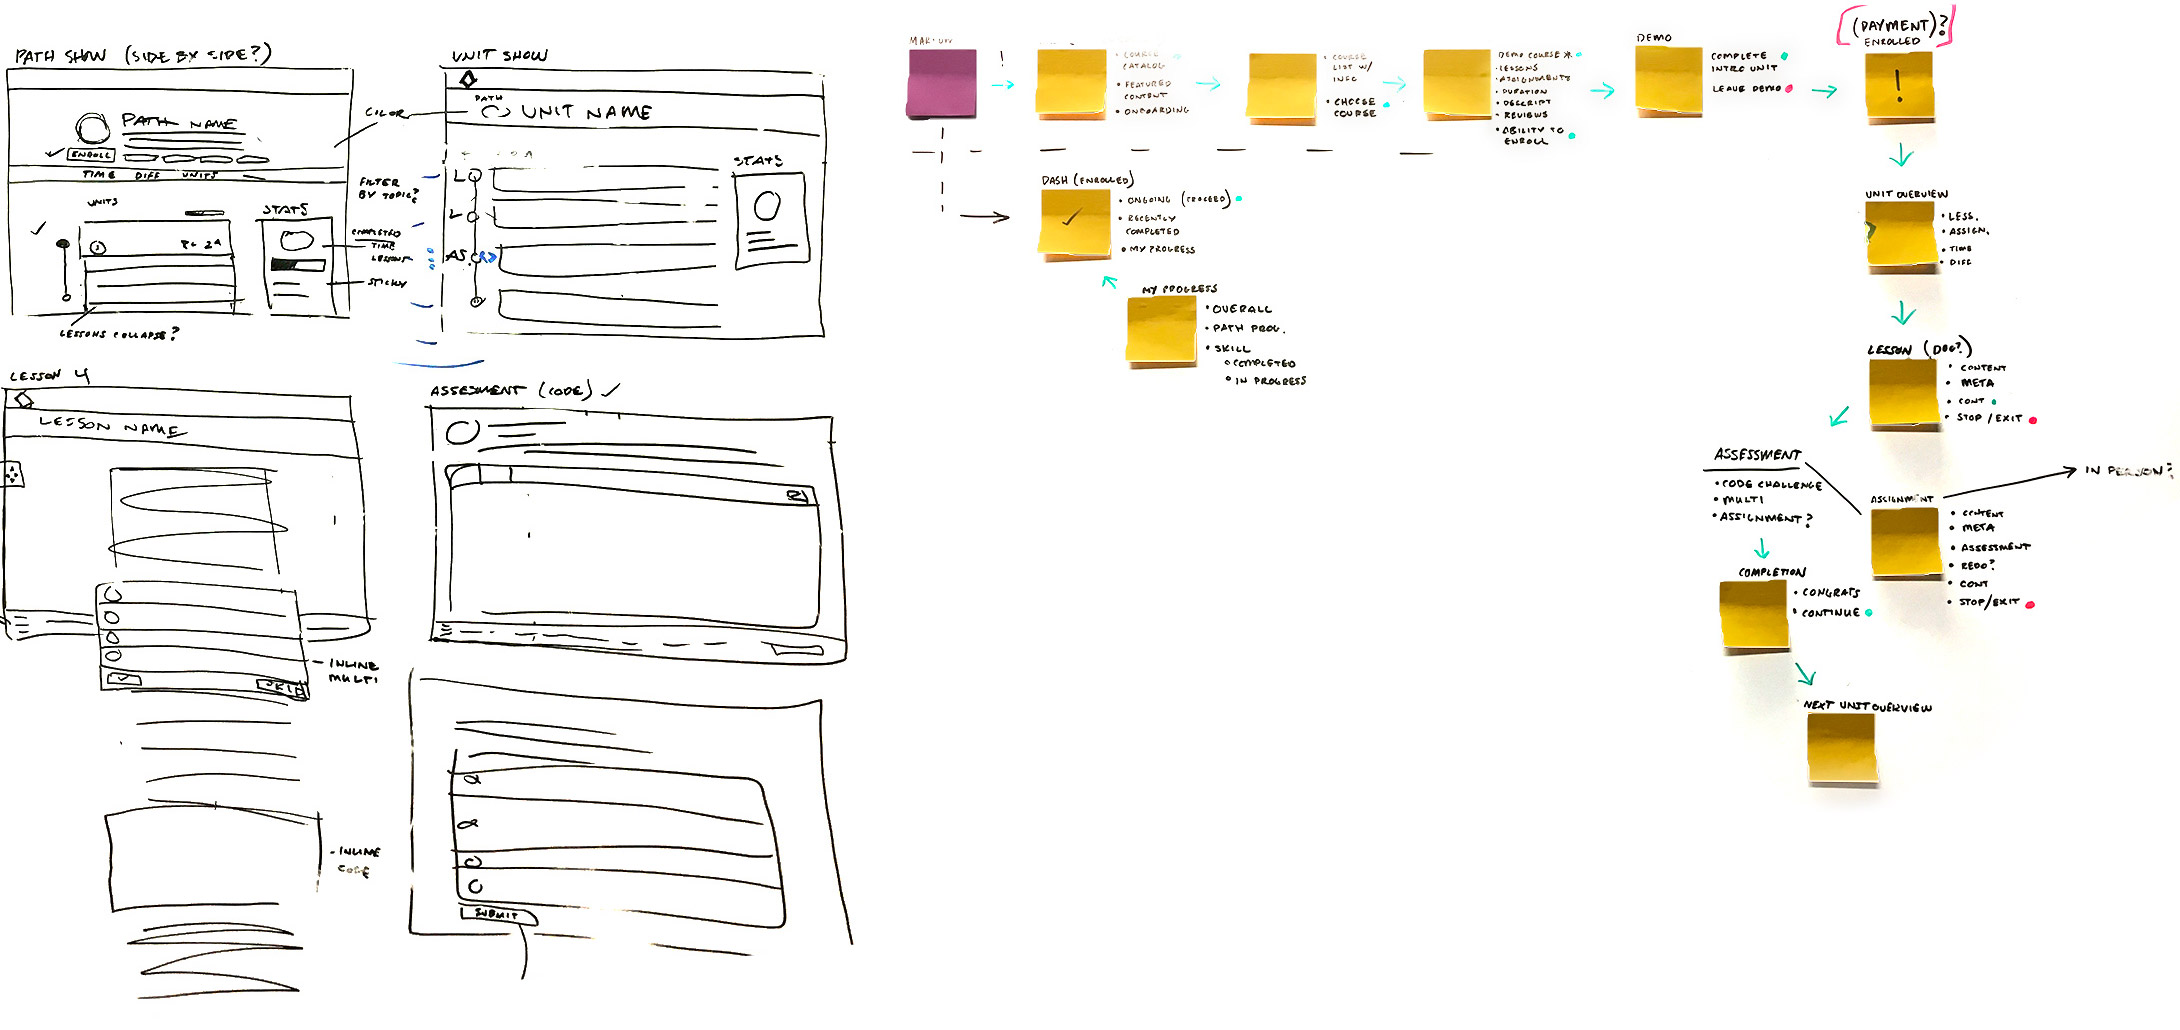 PATH SHOW (SIDE BY SIDE?)
PATH NAME
ENROLL
TIME DIFF UNITS
UNITS
STATS
LESSONS COLLAPSE?
COLOR
FILTER
BY TOPIC?
COMPLETED
TIME
LESSONS
STICKY
UNIT SHOW
PATH
UNIT NAME
STATS
L
L
AS.
LESSON 4
LESSON NAME
SKIP
- INLINE
MULTI
- INLINE
CODE
ASSESMENT (CODE) ✓
SUBMIT
!
• COURSE
CATALOG
• FEATURED
CONTENT
• ONBOARDING
• COURSE
LIST W/
INFO
• CHOOSE
COURSE
DEMO COURSE *
• LESSONS
• ASSIGNMENTS
• DURATION
• DESCRIPT
• REVIEWS
• ABILITY TO
ENROLL
DEMO
COMPLETE
INTRO UNIT
LEAVE DEMO
[(PAYMENT)?]
ENROLLED
!
DASH (ENROLLED)
• ONGOING (PROCEED)
• RECENTLY
COMPLETED
• MY PROGRESS
MY PROGRESS
• OVERALL
• PATH PROG.
• SKILL
○ COMPLETED
○ IN PROGRESS
UNIT OVERVIEW
• LESS.
• ASSIGN.
• TIME
• DIFF
LESSON (DOG?)
• CONTENT
• META
• CONT
• STOP/EXIT
ASSESSMENT
• CODE CHALLENGE
• MULTI
• ASSIGNMENT?
IN PERSON?
ASSIGNMENT
• CONTENT
• META
• ASSESSMENT
• REDO?
• CONT
• STOP/EXIT
COMPLETION
• CONGRATS
• CONTINUE
NEXT UNIT OVERVIEW